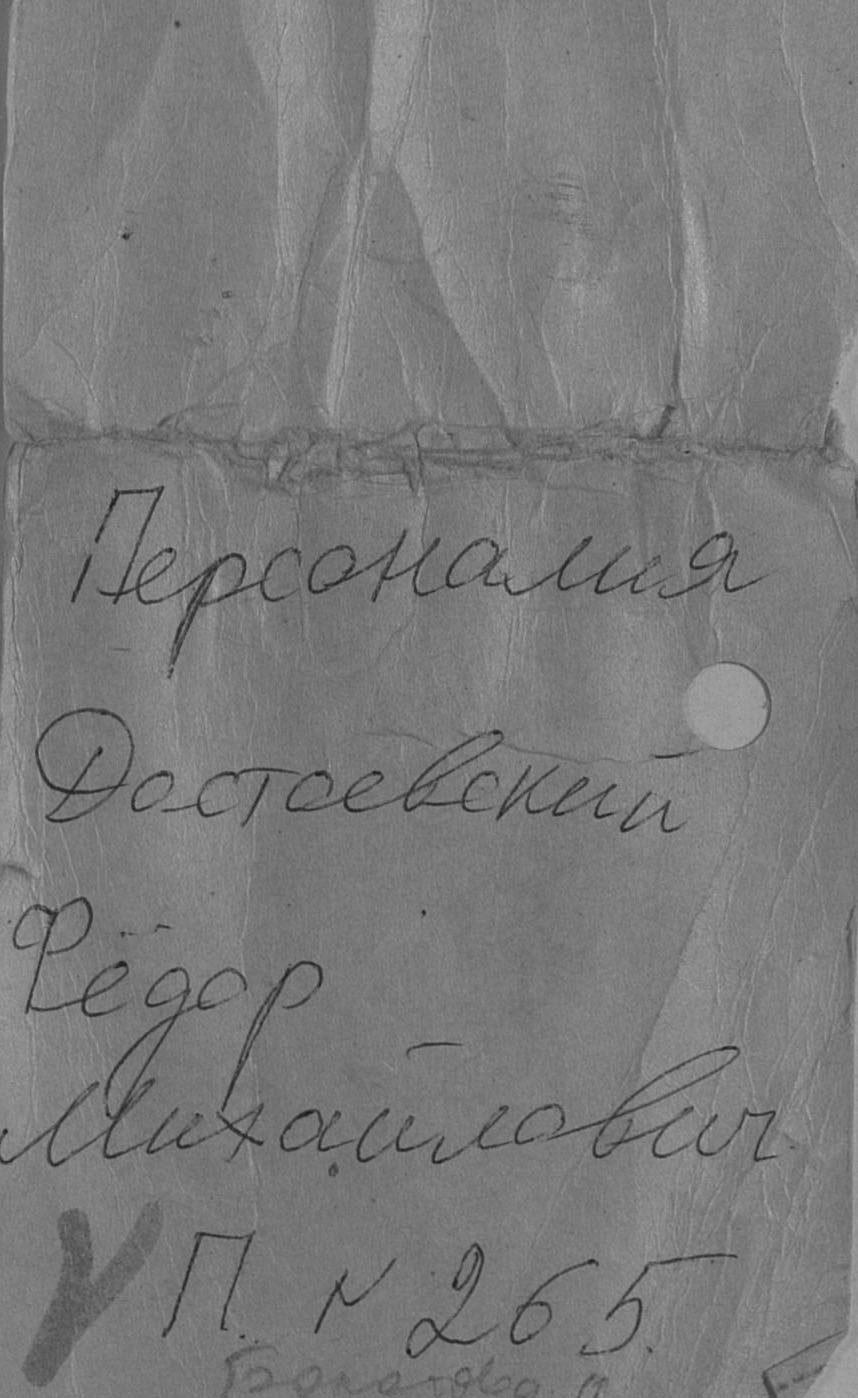 Персоналия
Достоевский
Фёдор
Михайлович
V П. N 265.